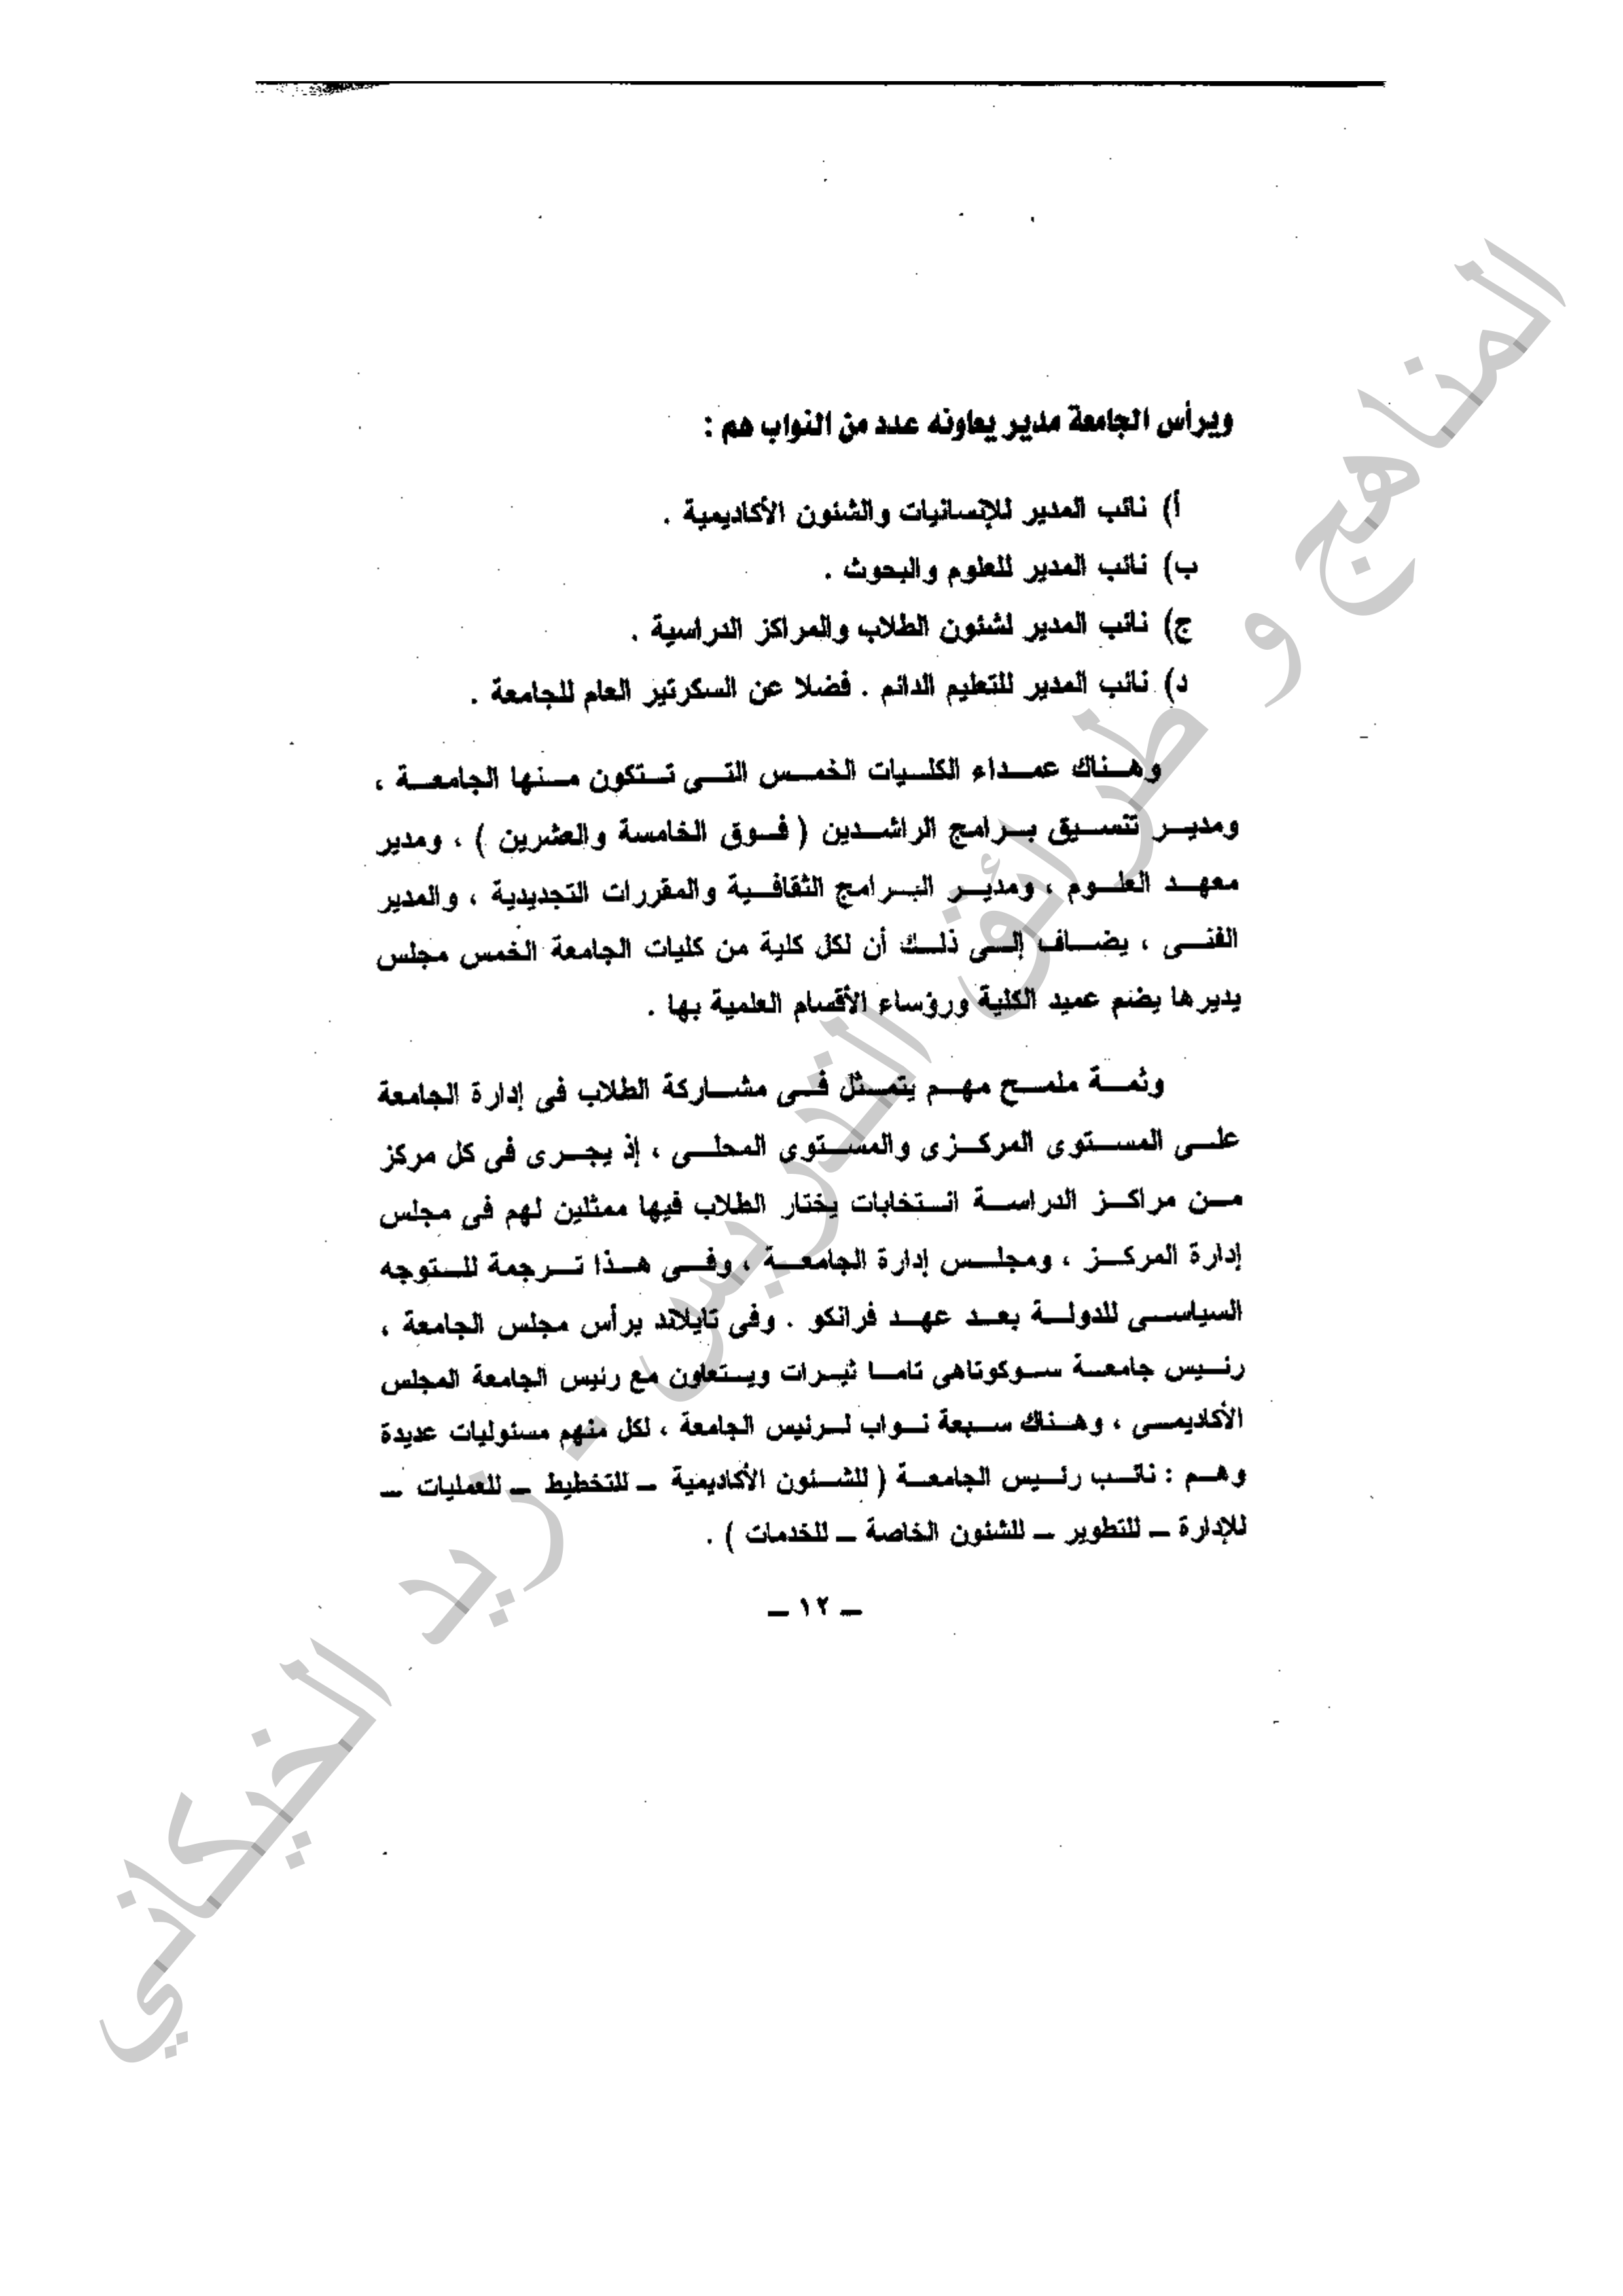 ويرأس الجامعة مدير يعاونه عدد من النواب هم :
أ) نائب المدير للإنسانيات والشئون الأكاديمية .
ب) نائب المدير للعلوم والبحوث .
ج) نائب المدير لشئون الطلاب والمراكز الدراسية .
د) نائب المدير للتعليم الدائم . فضلا عن السكرتير العام للجامعة .
وهناك عمداء الكليات الخمس التى تتكون منها الجامعة ،
ومدير تنسيق برامج الراشدين ( فوق الخامسة والعشرين ) ، ومدير
معهد العلوم ، ومدير البرامج الثقافية والمقررات التجديدية ، والمدير
الفنى ، يضاف إلى ذلك أن لكل كلية من كليات الجامعة الخمس مجلس
يديرها يضم عميد الكلية ورؤساء الأقسام العلمية بها .
وثمة ملمح مهم يتمثل فى مشاركة الطلاب فى إدارة الجامعة
على المستوى المركزى والمستوى المحلى ، إذ يجرى فى كل مركز
من مراكز الدراسة انتخابات يختار الطلاب فيها ممثلين لهم فى مجلس
إدارة المركز ، ومجلس إدارة الجامعة ، وفى هذا ترجمة للتوجه
السياسى للدولة بعد عهد فرانكو . وفى تايلاند يرأس مجلس الجامعة ،
رئيس جامعة سوكوتاهى تاما ثيرات ويتعاون مع رئيس الجامعة المجلس
الأكاديمى ، وهناك سبعة نواب لرئيس الجامعة ، لكل منهم مسئوليات عديدة
وهم : نائب رئيس الجامعة ( للشئون الأكاديمية – للتخطيط – للعمليات –
للإدارة – للتطوير – للشئون الخاصة – للخدمات ) .
– ١٢ –
المناهج و طرائق التدريس - زيد الخيكاني